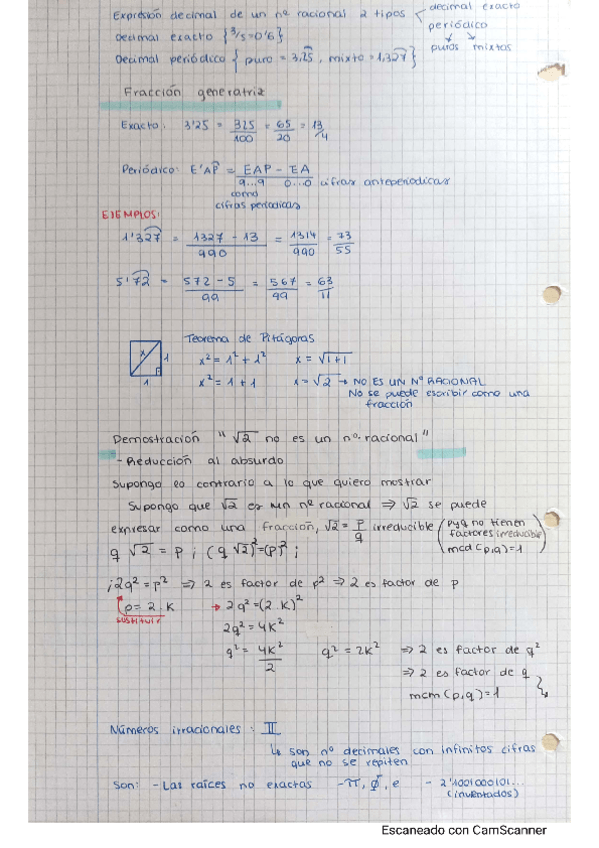 Expresión decimal de un nº racional 2 tipos decimal exacto
periódico
puros mixtos
Decimal exacto {3/5=0'6}
Decimal periódico { puro = 3,25, mixto = 1,327}
Fracción generatriz
Exacto: 3'25 = 325/100 = 65/20 = 13/4
Periódico: E'AP = EAP - EA / 9...9 0...0 cifras anteperiodicas
como
cifras periodicas
EJEMPLOS:
1'327 = 1327 - 13 / 990 = 1314/990 = 73/55
5'72 = 572 - 5 / 99 = 567/99 = 63/11
Teorema de Pitágoras
x 1 1
x² = 1² + 1² x = √1+1
x² = 1 + 1 x = √2 → NO ES UN Nº RACIONAL
No se puede escribir como una
fracción
Demostración "√2 no es un nº racional"
- Reducción al absurdo
Supongo lo contrario a lo que quiero mostrar
Supongo que √2 es un nº racional ⇒ √2 se puede
expresar como una fracción, √2 = p/q irreducible (p y q no tienen
factores irreducible
mcd (p,q) = 1)
q √2 = p ; (q √2)² = (p)² ;
¡2q² = p² ⇒ 2 es factor de p² ⇒ 2 es factor de p
p = 2·K → 2q² = (2·K)²
sustituir
2q² = 4K²
q² = 4K²/2 q² = 2K² ⇒ 2 es factor de q²
⇒ 2 es factor de q
mcm (p,q) = 1
Números irracionales : II
↳ son nº decimales con infinitos cifras
que no se repiten
Son: - Las raíces no exactas - π, ϕ, e - 2'1001000101...
(inventados)
Escaneado con CamScanner